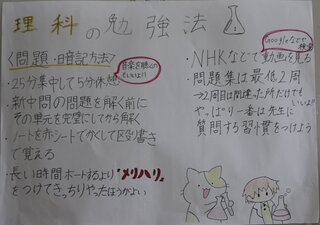 理科の勉強法
〈問題・暗記方法〉
音楽を聴いてもいいよ!!
・25分集中して5分休憩
・新中問の問題を解く前に
その単元を完璧にしてから解く
・ノートを赤シートでかくして区切り書き
で覚える
・長い時間ボーするより"メリハリ"
をつけてきっちりやったほうがよい
Googleなどで検索
・NHKなどで動画を見る
・問題集は最低2周
→2周目は間違った所だけでも
いいよ!!
・やっぱり一番は先生に
質問する習慣をつけよう